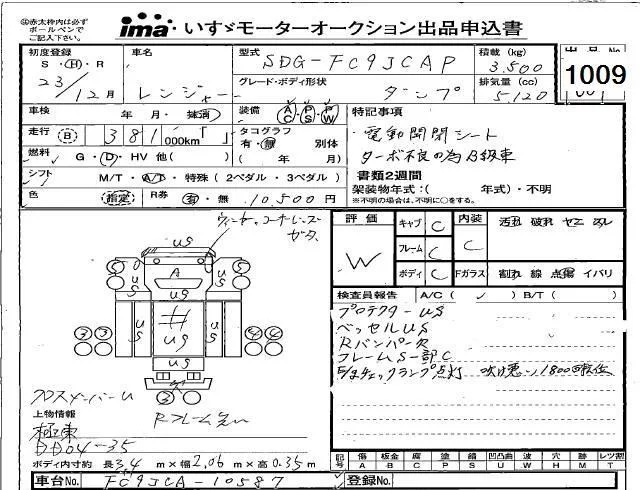 ※赤太枠内は必ず
ボールペンで
ご記入下さい。
ima いすゞモーターオークション出品申込書
初度登録
S・H・R
23/12月
車名
レンジャー
型式
SDG-FC9JCAP
グレード・ボディ形状
ダンプ
積載 (kg)
3,500
排気量 (cc)
5,120
1009
車検
年 月・抹消
装備
AC PS PW
特記事項
電動開閉シート
ターボ不良の為B級車
走行
B
381,000km
タコグラフ
有・無 別体
( 年 月)
燃料
G・D・HV 他( )
書類2週間
シフト
M/T・A/T・特殊 ( 2ペダル・3ペダル )
架装物年式:( 年式)・不明
※不明の場合は、不明に○をする。
色
指定
R券
有・無 10500円
ウィンカー、コーナーレンズ
ガタ
US
5 5
A
US
US US US US
3 3 4 4
US
3
クロスメンバーU
上物情報
極東
DD04-35
ボディ内寸約 長3.4 m×幅2.06 m×高0.35m
車台No. FC9JCA-10587
登録No.
評価
W
キャブ C
フレーム C
ボディ C
内装
C
汚れ 破れ ヤニ スレ
Fガラス
割れ 線 点傷 イバリ
検査員報告 A/C ( ✓ ) B/T ( )
プロテクターUS
ベッセルUS
RバンパーR
フレームS一部C
記号
傷 板金 腐 塗 錆 凹凸曲 波 穴 跡 レツ割
A B C P S U W H M T